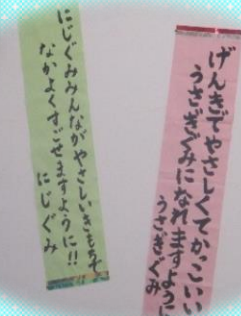 げんきでやさしくてかっこいい
うさぎぐみになれますように
うさぎぐみ
にじぐみみんながやさしいきもちで
なかよくすごせますように!!
にじぐみ